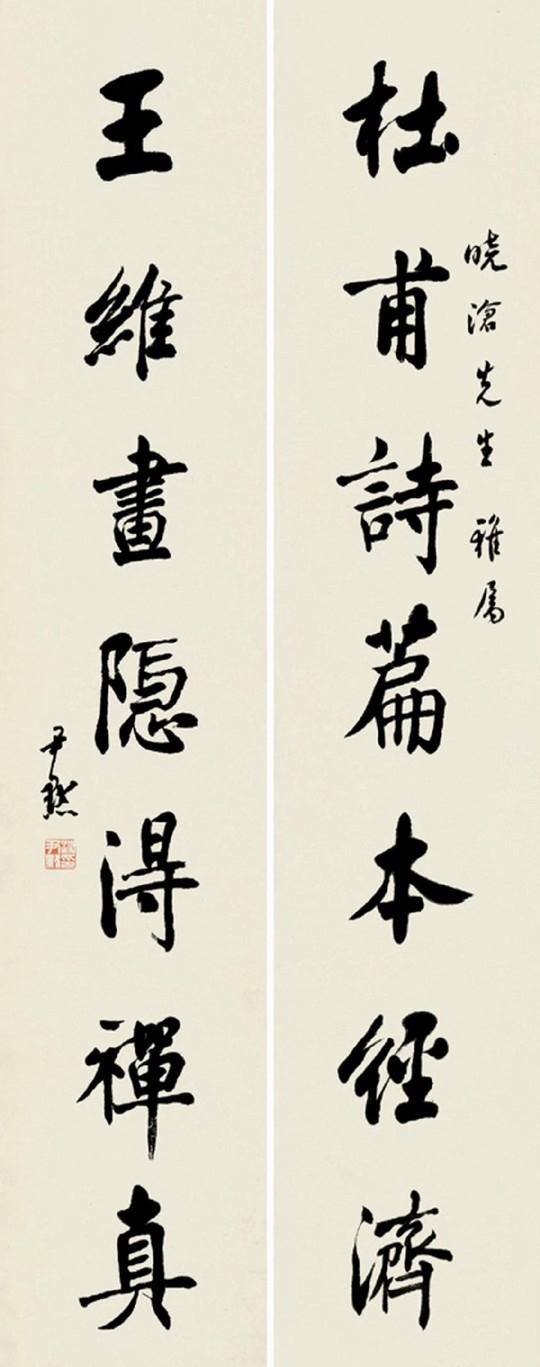 杜甫詩篇本經濟
曉滄先生雅属
王維畫隱得禪真
尹默